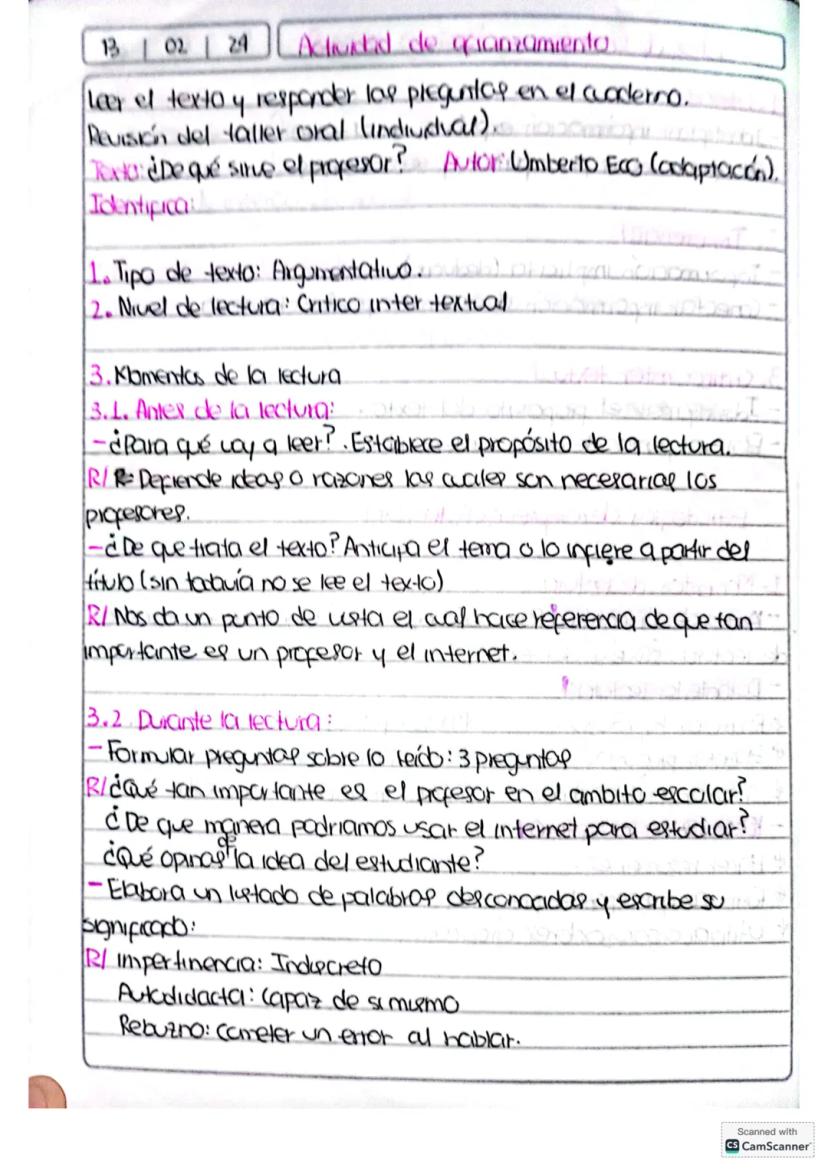 13 | 02 | 24 Actividad de afianzamiento
Leer el texto y responder las preguntas en el cuaderno.
Revisión del taller oral (individual).
Texto: ¿De qué sirve el profesor? Autor: Umberto Eco (adaptación).
Identifica:
1. Tipo de texto: Argumentativo.
2. Nivel de lectura: Critico inter textual
3. Momentos de la lectura
3.1. Antes de la lectura:
- ¿Para qué voy a leer? . Establece el propósito de la lectura.
R/ Depiende ideas o razones las cuales son necesarias los
profesores.
- ¿De que trata el texto? Anticipa el tema o lo infiere a partir del
título (sin todavía no se lee el texto)
R/ Nos da un punto de vista el cual hace referencia de que tan
importante es un profesor y el internet.
3.2 Durante la lectura:
- Formular preguntas sobre lo leído: 3 preguntas
R/ ¿Qué tan importante es el profesor en el ambito escolar?
¿De que manera podriamos usar el internet para estudiar?
¿Qué opinas de la idea del estudiante?
- Elabora un listado de palabras desconocidas y escribe su
significado:
R/ impertinencia: Indiscreto
Autodidacta: Capaz de si mismo
Rebuzno: Cometer un error al hablar.
Scanned with
CS CamScanner